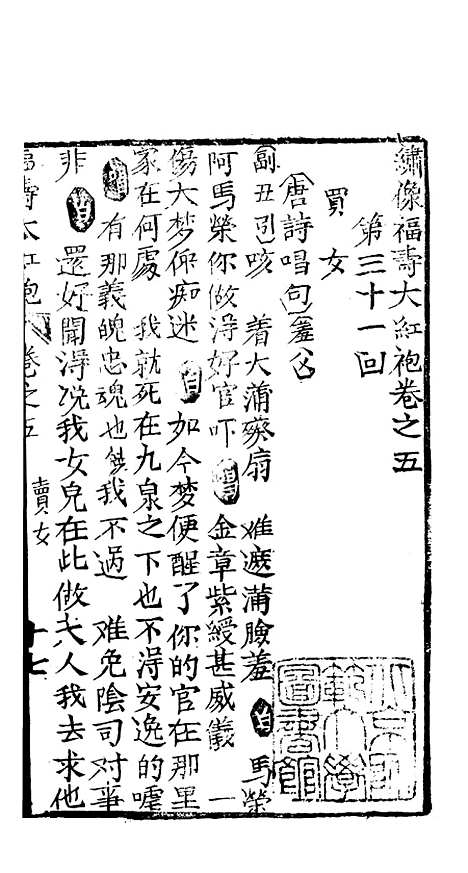 繡像福壽大紅袍卷之五
第三十一回
買女
唐詩唱句
副丑引咳 着大蒲葵扇 难遮滿臉羞 白 馬榮
阿馬榮你做淂好官吓 唱 金章紫綬甚威儀 一
傷大梦你痴迷 白 如今梦便醒了你的官在那里
家在何處 我就死在九泉之下也不淂安逸的嚏
唱 有那義魄忠魂也饒我不過 难免陰司对事
非 白 還好聞淂説我女兒在此做夫人我去求他
福壽大紅袍 卷之五 賣女 十七
北京師範大學圖書館